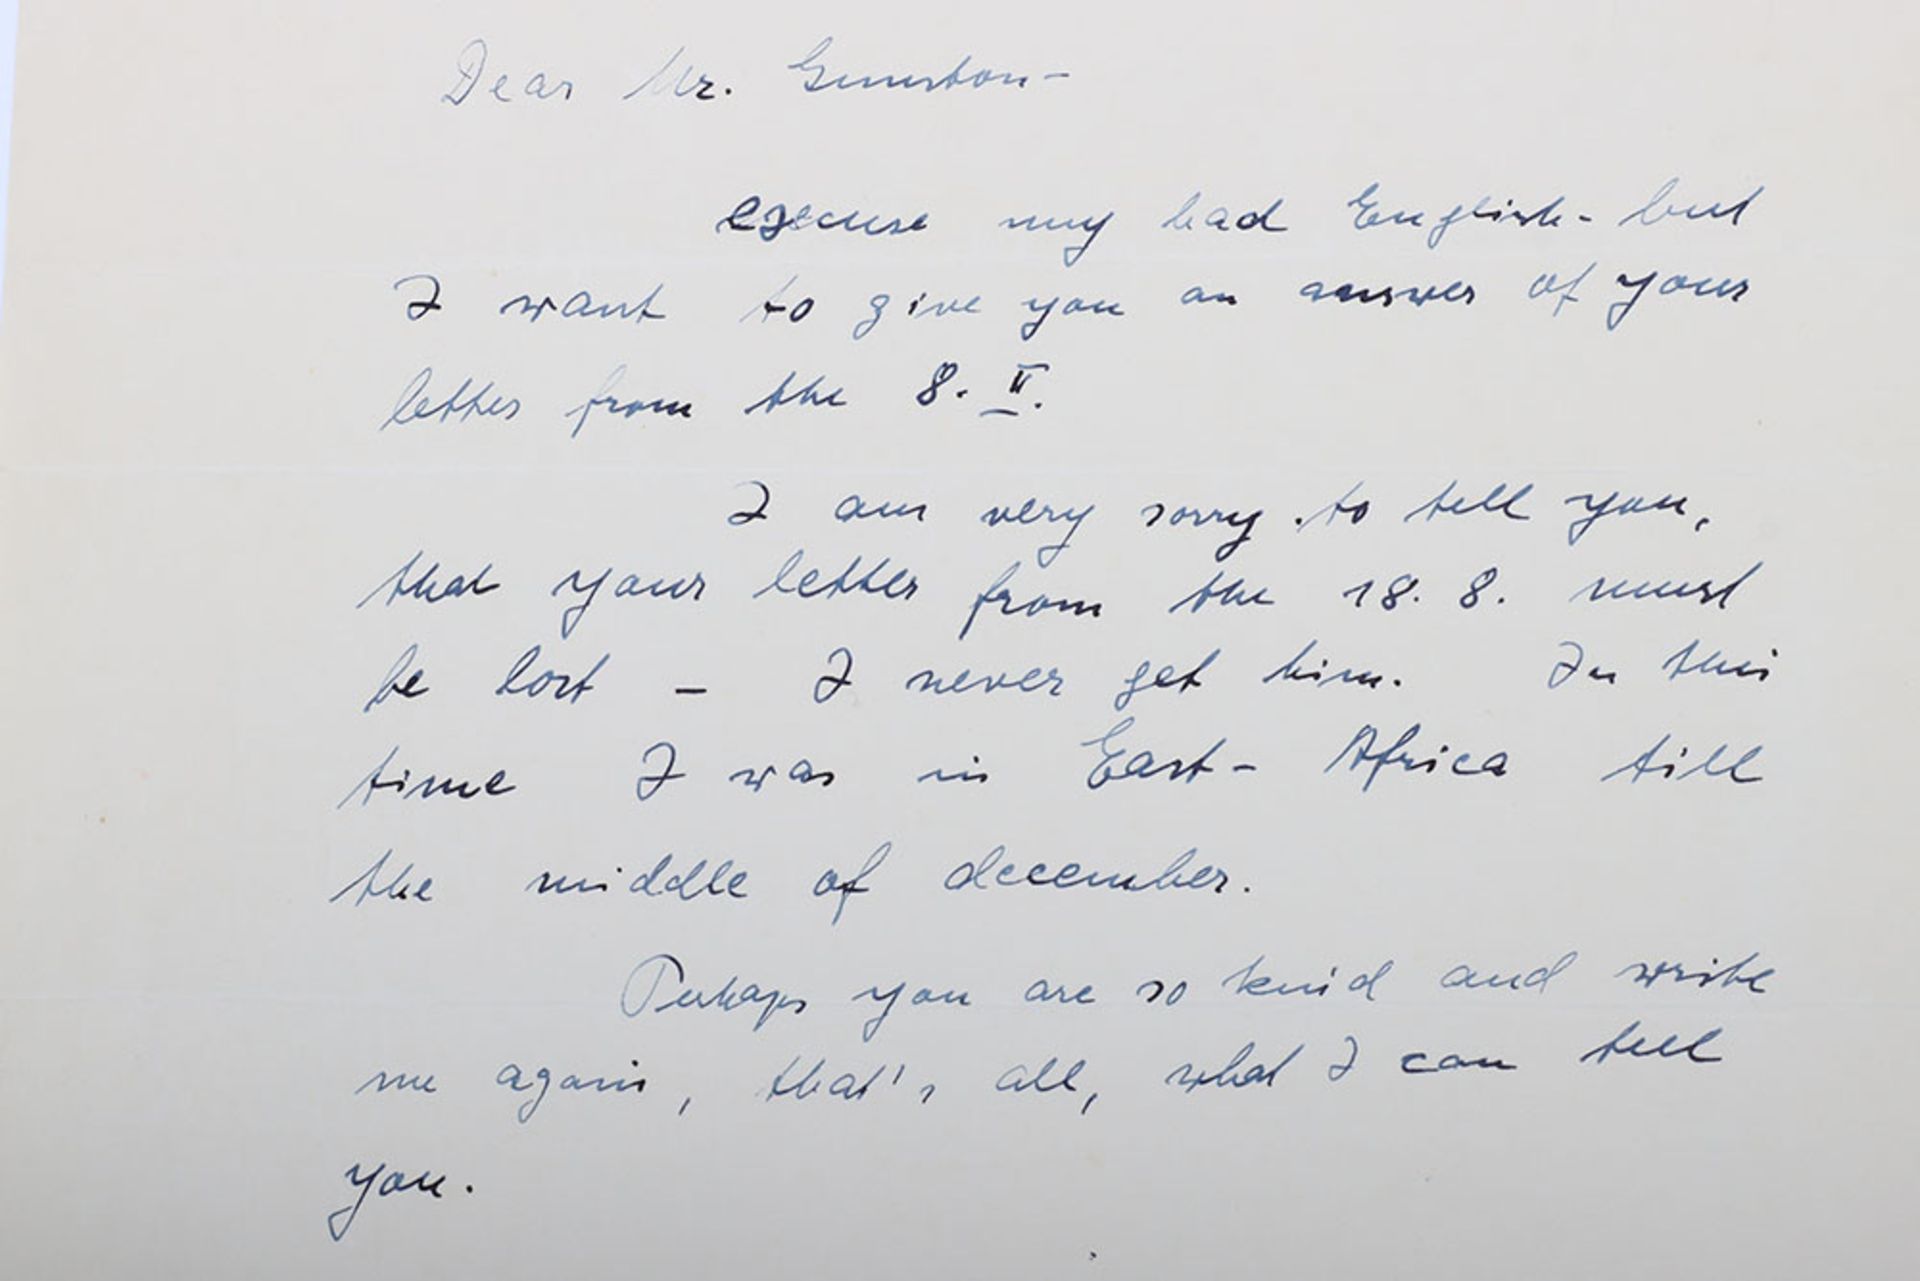 Dear Mr. Gunston-
excuse my bad English- but
I want to give you an answer of your
letter from the 8. II.
I am very sorry to tell you,
that your letter from the 18. 8. must
be lost - I never get him. In this
time I was in East- Africa till
the middle of december.
Perhaps you are so kind and write
me again, that's all, what I can tell
you.